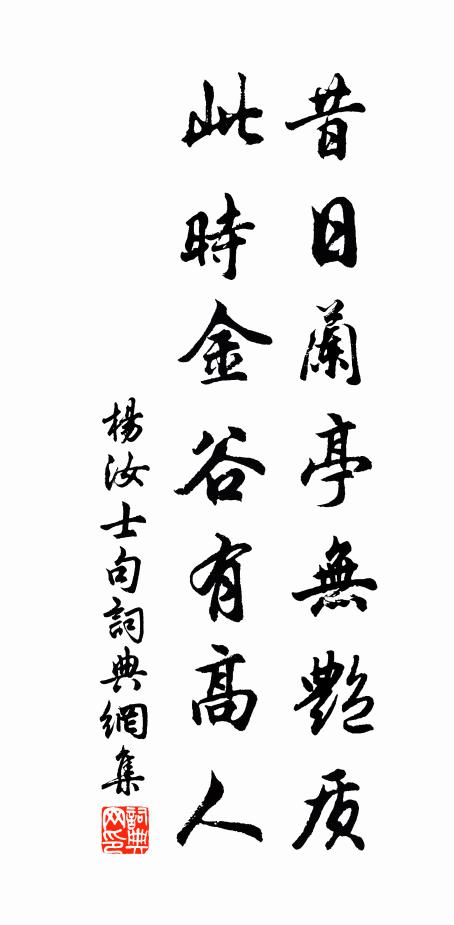 昔日蘭亭無艷质
此時金谷有高人
楊汝士句詞典網集
詞典网印